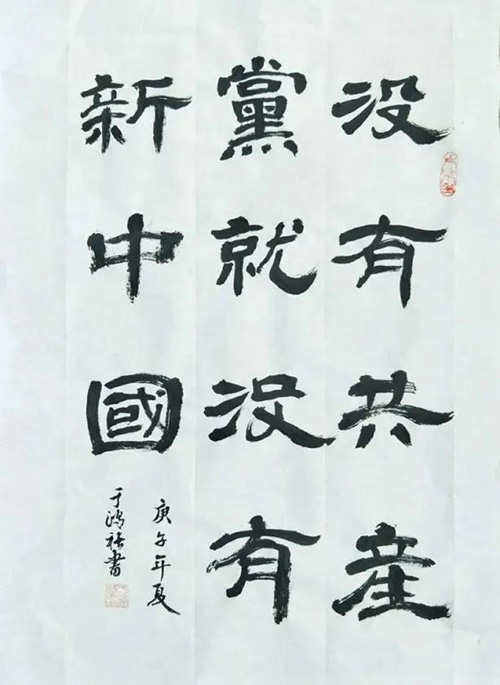 没有共產
黨就没有
新中國
庚子年夏
于鴻禧書